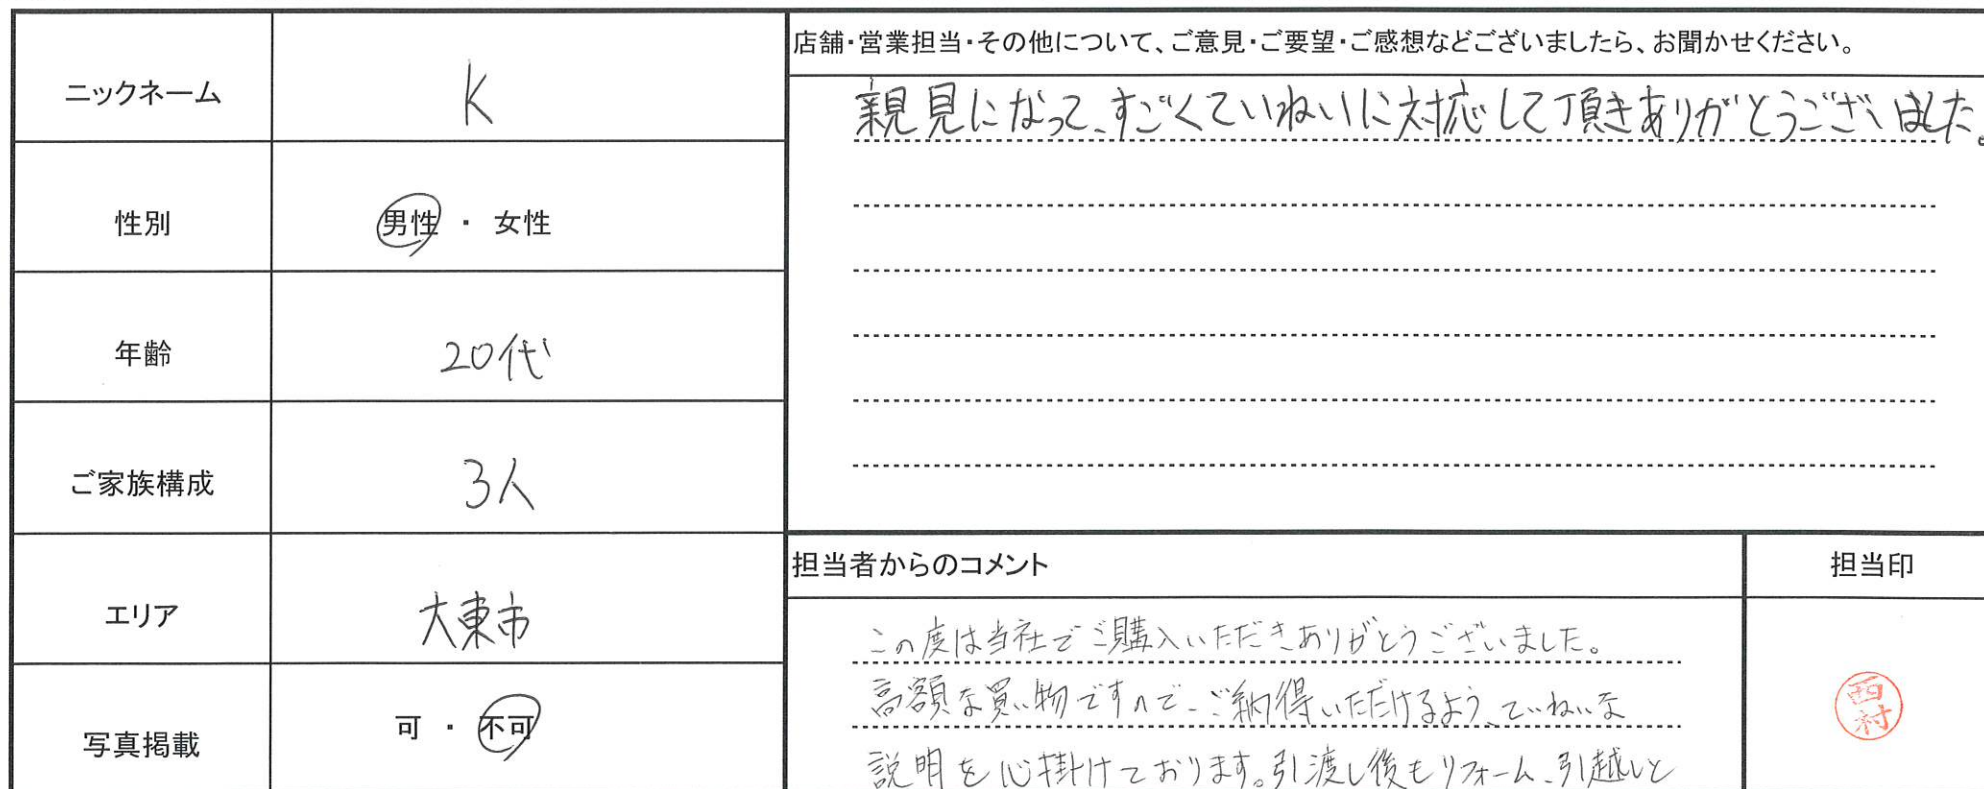 ニックネーム
K
性別
男性 ・ 女性
年齢
20代
ご家族構成
3人
エリア
大東市
写真掲載
可 ・ 不可
店舗・営業担当・その他について、ご意見・ご要望・ご感想などございましたら、お聞かせください。
親見になって、すごくていねいに対応して頂きありがとうございました。
担当者からのコメント
この度は当社でご購入いただきありがとうございました。
高額な買い物ですので、ご納得いただけるよう、ていねいな
説明を心掛けております。引渡し後もリフォーム、引越しと
担当印
西村